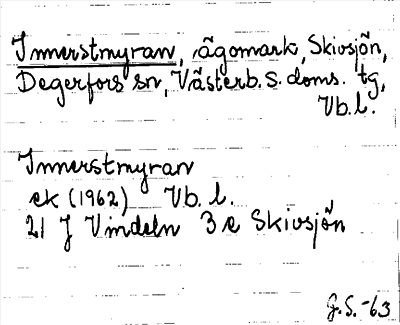 Innerstmyran, ägomark, Skivsjön,
Degerfors sn, Västerb. s. doms. tg,
Vb. l.
Innerstmyran
ek (1962) Vb. l.
21 J Vindeln 3 e Skivsjön
G.S. -63